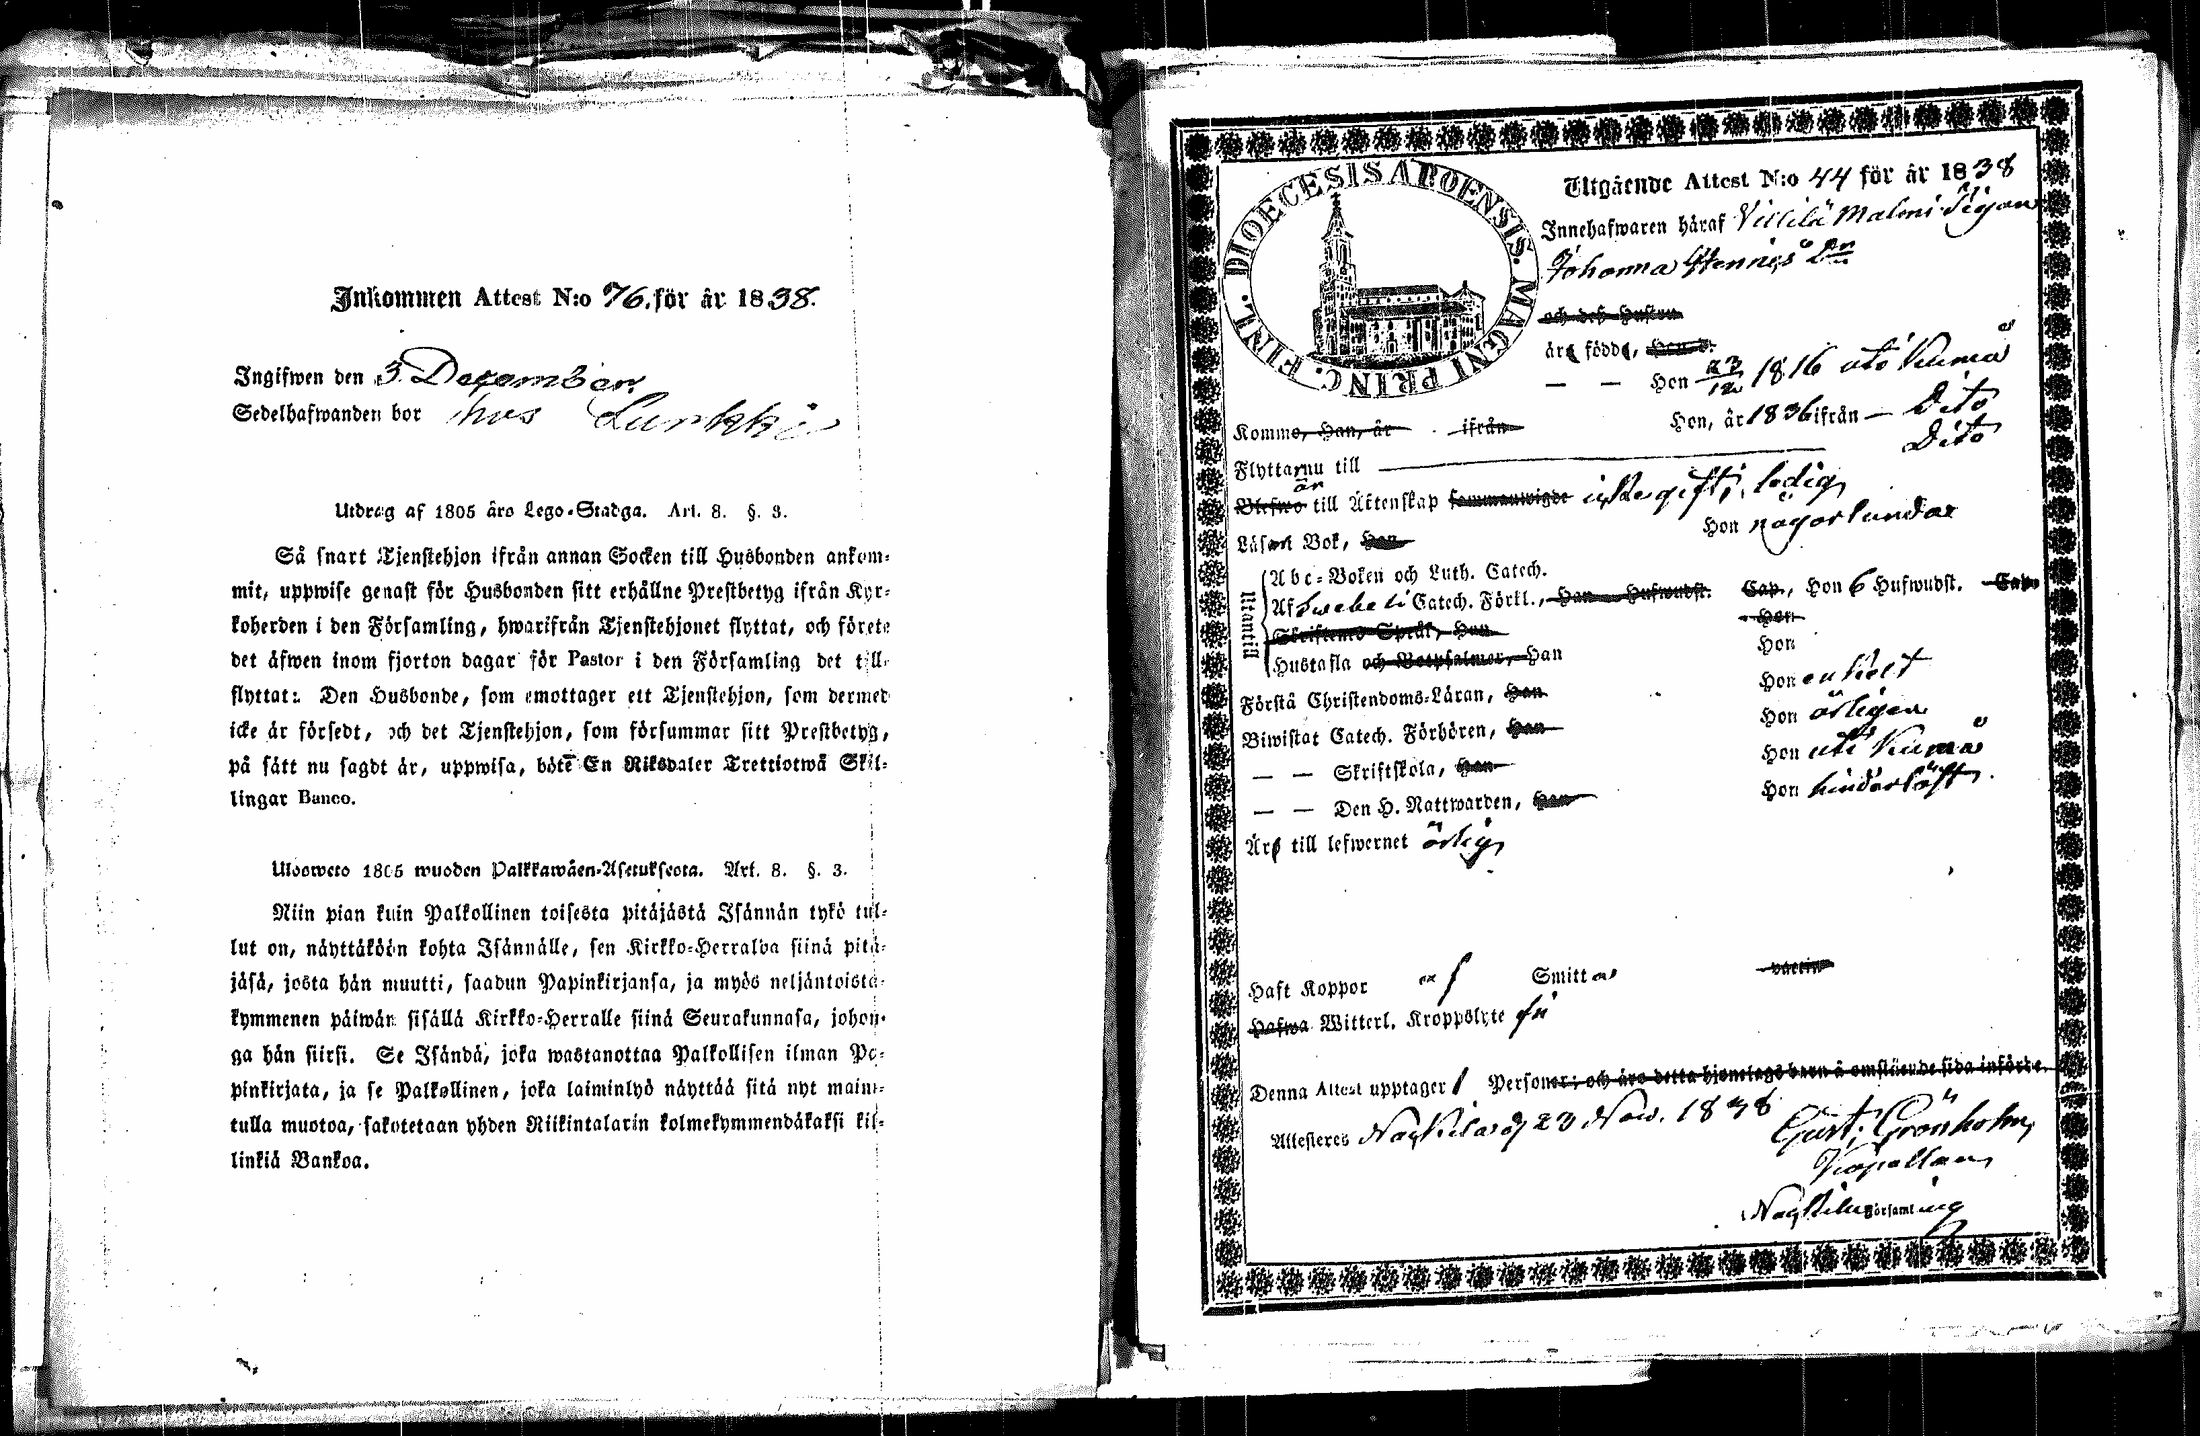 Inkommen Attest N:o 76. för år 1838.
Ingifwen den 3. December.
Sedelhafwanden bor hos Lurkki
Utdrag af 1805 års Lego-Stadga. Art. 8. §. 3.
Så snart Tjenstehjon ifrån annan Socken till Husbonden ankom-
mit, uppwise genast för Husbonden sitt erhållne Prestbetyg ifrån Kyr-
koherden i den Församling, hwarifrån Tjenstehjonet flyttat, och förete
det äfwen inom fjorton dagar för Pastor i den Församling det till-
flyttat: Den Husbonde, som emottager ett Tjenstehjon, som dermed
icke är försedt, och det Tjenstehjon, som försummar sitt Prestbetyg,
på sätt nu sagdt är, uppwisa, böte En Riksdaler Trettiotwå Skil-
lingar Banco.
Ulosweto 1805 wuoden Palkkawäen-Asetuksesta. Art. 8. §. 3.
Niin pian kuin Palkollinen toisesta pitäjästä Isännän tykö tul-
lut on, näyttäköön kohta Isännälle, sen Kirkko-Herralda siinä pitä-
jäsä, josta hän muutti, saadun Papinkirjansa, ja myös neljäntoista-
kymmenen päiwän sisällä Kirkko-Herralle siinä Seurakunnasa, johon-
ga hän siirsi. Se Isändä, joka wastanottaa Palkollisen ilman Pa-
pinkirjata, ja se Palkollinen, joka laiminlyö näyttää sitä nyt maini-
tulla muotoa, sakotetaan yhden Riikintalarin kolmekymmendäkaksi kil-
linkiä Bankoa.
DIOECESIS ABOENSIS. MAGNI PRINC. FINL.
Utgående Attest N:o 44 för år 1838
Innehafwaren häraf Villilä Malmi Pigan
Johanna Hennes Dr
och deß Hustru
äro födde,
— — Hon 23/12 1816 uti Kumå
Komme, Han, år ifrån Hon, år 1836 ifrån — Dito
Flytta nu till Dito
Blefwo är till Äktenskap sammanwigde icke gift, ledig
Läsa i Bok, Han Hon någorlunda
Utantill
Abc-Boken och Luth. Catech.
Af Svebeli Catech. Förkl., Han Hufwudst. Cap., Hon 6 Hufwudst. Cap.
Skriftenes Språk, Han Hon
Hustafla och Botpsalmer, Han Hon
Förstå Christendoms-Läran, Han Hon enkelt
Biwistat Catech. Förhören, Han Hon årligen
— — Skriftskola, Han Hon uti Kumå
— — Den H. Nattwarden, Han Hon hinderlöst.
Äro till lefwernet ärlig
Haft Koppor Smitt
Hafwa Witterl. Kroppslyte
Denna Attest upptager 1 Personer; och äro detta hjonelags barn å omstående sida införde.
Attesteres Nackila d 23 Nov. 1838 Gust. Grönholm,
Kapellan
Nackila Församling